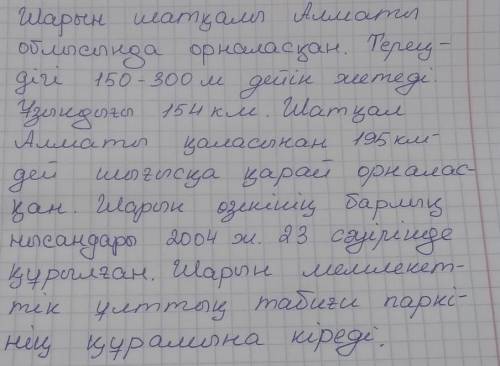 Шарын шатқалы Алматы
облысында орналасқан. Терең-
дігі 150-300 м дейін жетеді.
Ұзындығы 154 км. Шатқал
Алматы қаласынан 195 км-
дей шығысқа қарай орналас-
қан. Шарын өзенінің барлық
нысандары 2004 ж. 23 сәуірінде
құрылған. Шарын мемлекет-
тік ұлттық табиғи паркі-
нің құрамына кіреді.